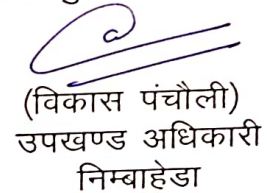 (विकास पंचौली)
उपखण्ड अधिकारी
निम्बाहेडा